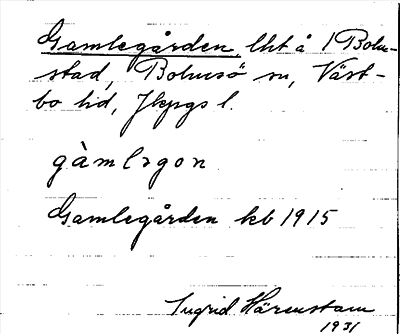 Gamlegården, lht å 1 Bolm-
stad, Bolmsö sn, Väst-
bo hd, Jkpgs l.
gàmləgon
Gamlegården kb 1915
Ingrid Härenstam
1931